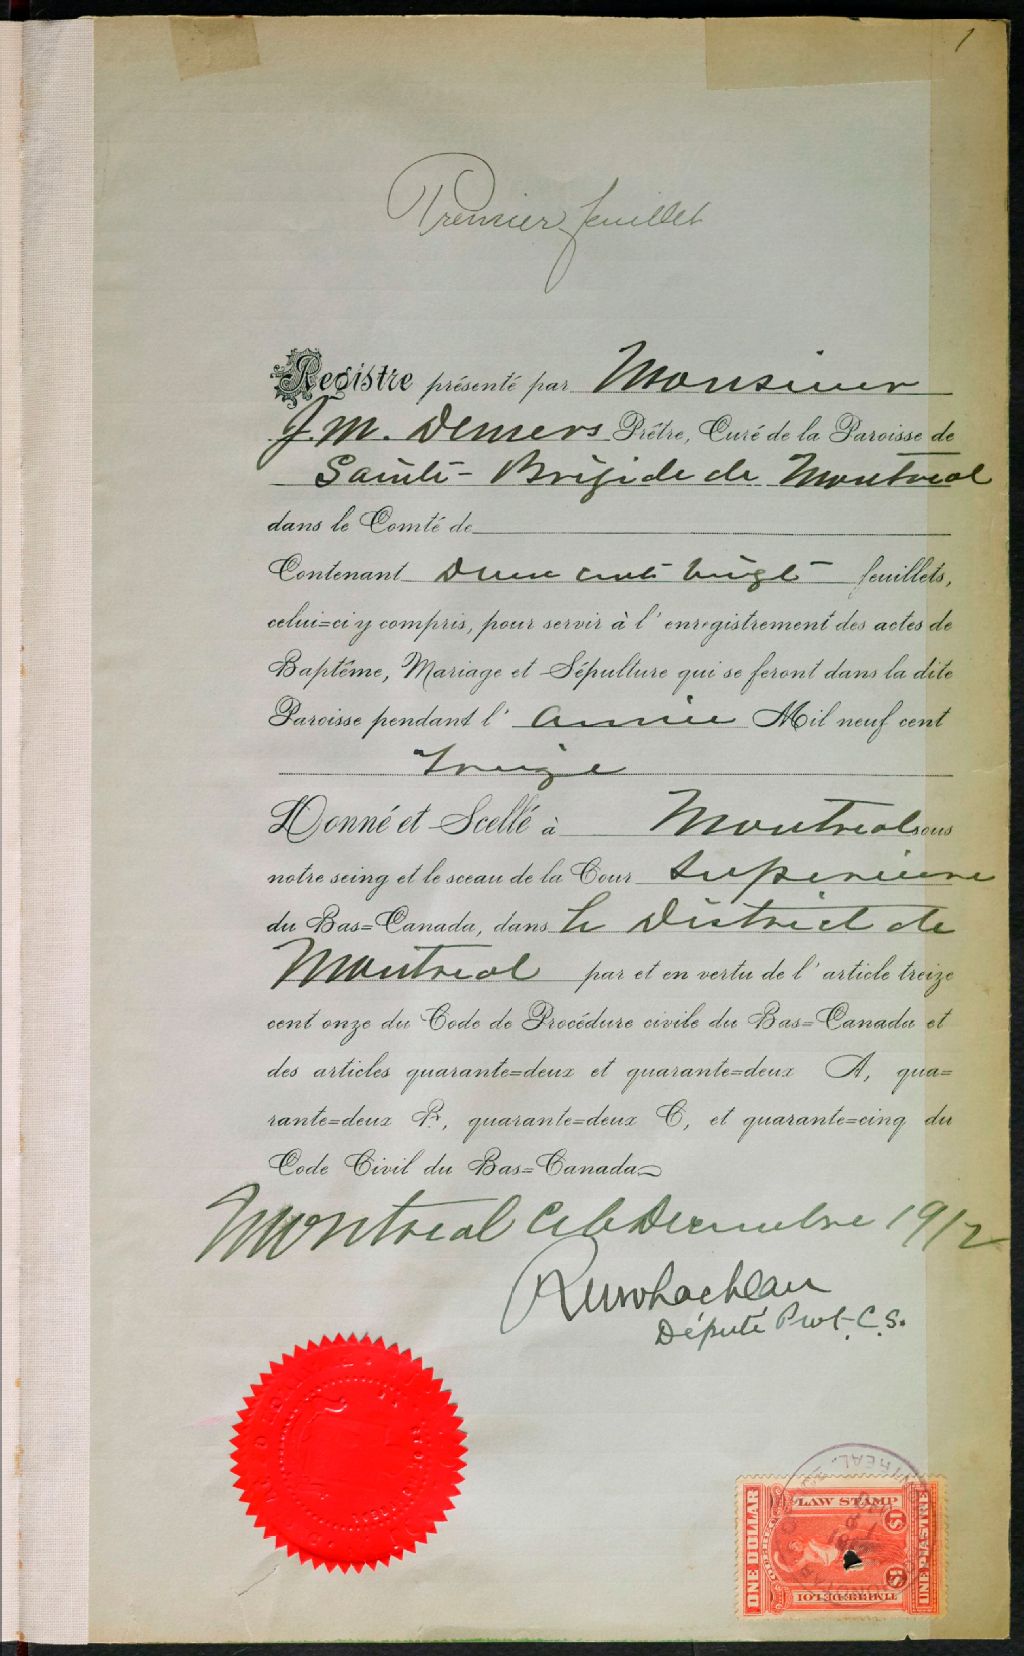 1
Premier feuillet
Registre présenté par Monsieur
J. M. Demers Prêtre, Curé de la Paroisse de
Sainte-Brigide de Montreal
dans le Comté de
Contenant deux cent vingt feuillets,
celui=ci y compris, pour servir à l'enregistrement des actes de
Baptême, Mariage et Sépulture qui se feront dans la dite
Paroisse pendant l'année Mil neuf cent
Treize
Donné et Scellé à Montreal sous
notre seing et le sceau de la Cour Superieure
du Bas=Canada, dans le District de
Montreal par et en vertu de l'article treize
cent onze du Code de Procédure civile du Bas=Canada et
des articles quarante=deux et quarante=deux A, qua=
rante=deux B, quarante=deux C, et quarante=cinq du
Code Civil du Bas=Canada
Montreal ce 6 Decembre 1912
Député Prot. C. S.
LAW STAMP
ONE DOLLAR
QUEBEC
$1
ONE PIASTRE
TIMBRE DE LOI